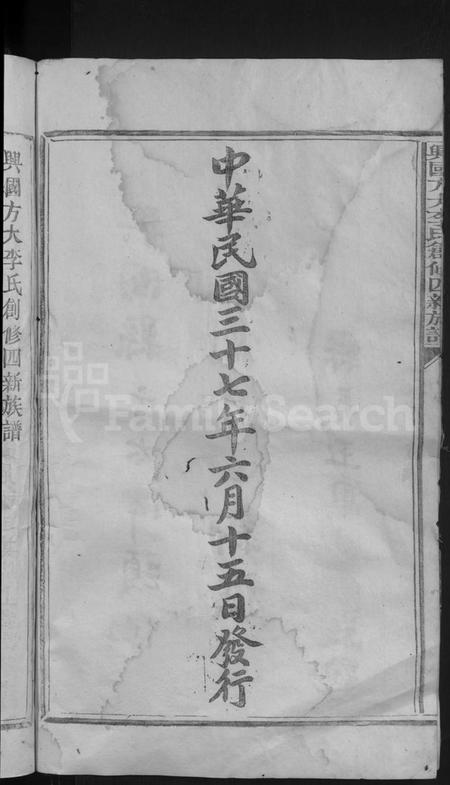 興國方大李氏創修四新族譜
中華民國三十七年六月十五日發行
興國方大李氏創修四新族譜
FamilySearch